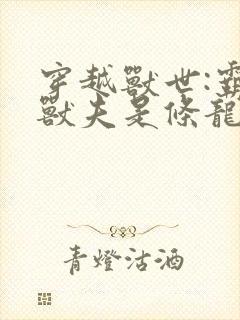 穿越獸世:霸
獸夫是條龍
青燈沽酒